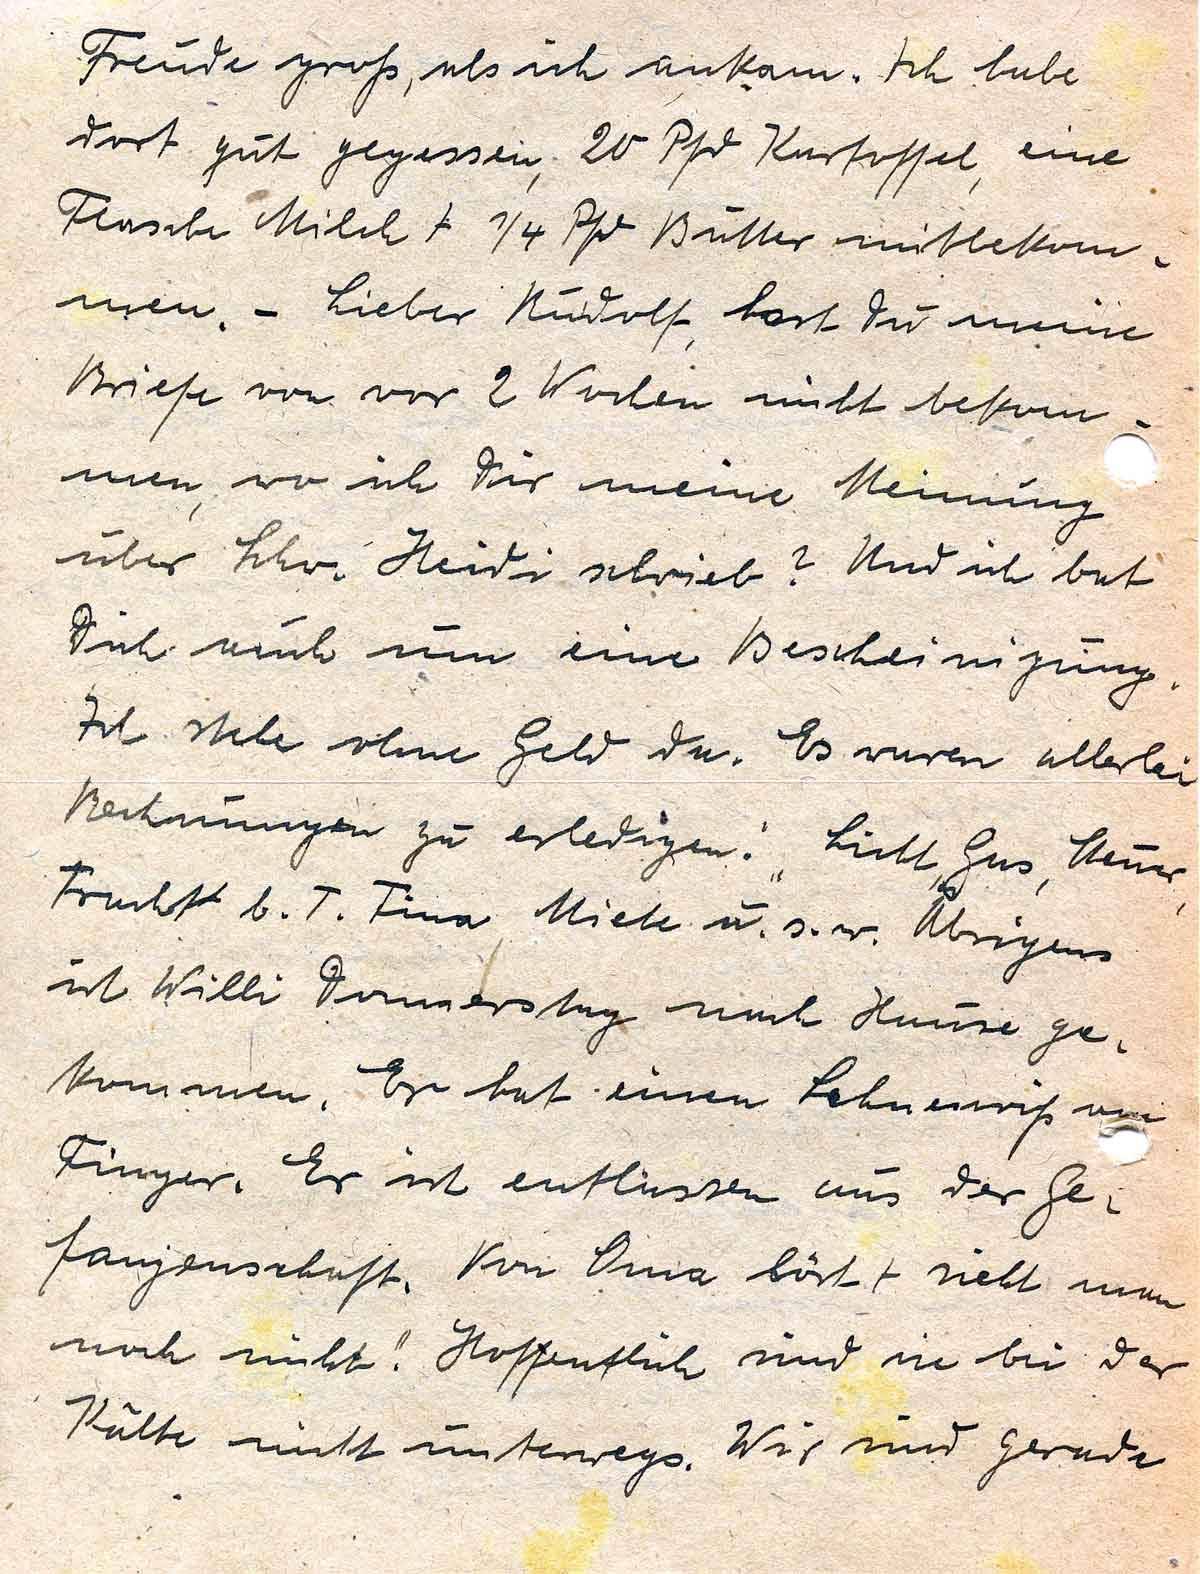 Freude groß, als ich ankam. Ich habe
dort gut gegessen, 20 Pfd Kartoffel, eine
Flasche Milch + 1/4 Pfd Butter mitbekom-
men. - Lieber Rudolf, hast Du meine
Briefe von vor 2 Wochen nicht bekom-
men, wo ich Dir meine Meinung
über Schw. Heidi schrieb? Und ich bat
Dich auch um eine Bescheinigung.
Ich stehe ohne Geld da. Es waren allerlei
Rechnungen zu erledigen: Licht, Gas, Steuer,
Fracht b. T. Tina, Miete u.s.w. Übrigens
ist Willi Donnerstag nach Hause ge-
kommen. Er hat einen Sehnenriß am
Finger. Er ist entlassen aus der Ge-
fangenschaft. Von Oma hört + sieht man
noch nichts! Hoffentlich sind sie bei der
Kälte nicht unterwegs. Wir sind gerade